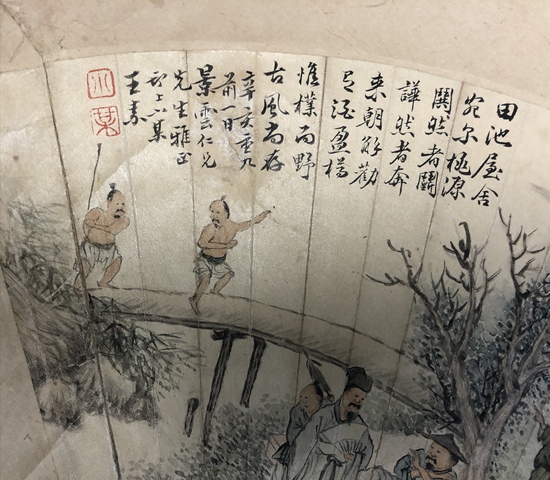 田池屋舍
宛尔桃源
鬨然者鬪
譁然者奔
来朝解勸
酒盈樽
惟樸而野
古風尚存
辛亥重九
前一日
景雲仁兄
先生雅正
邗上小某
王素
小某